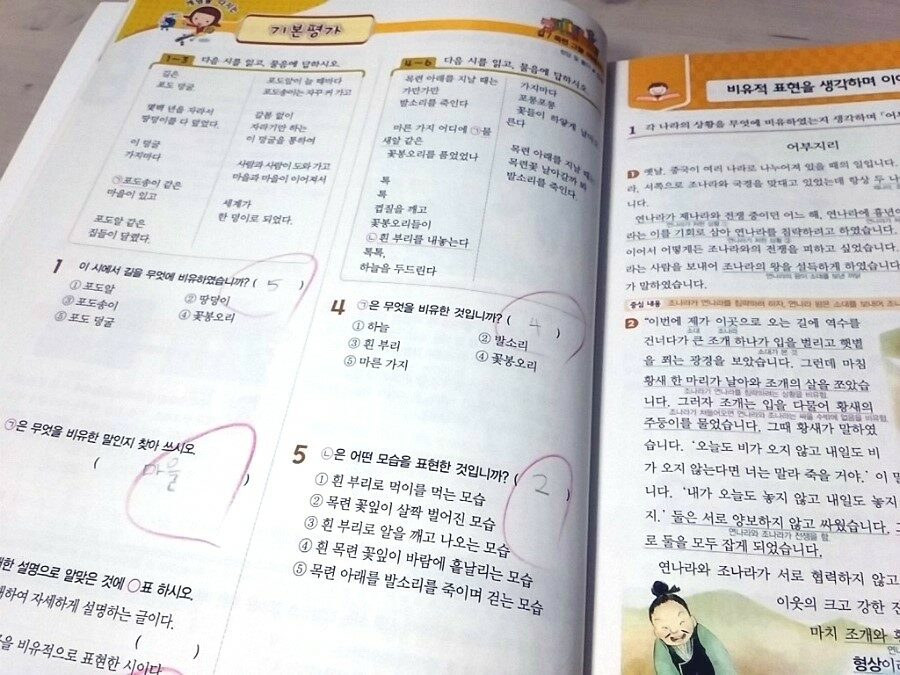 기본평가
1~3 다음 시를 읽고, 물음에 답하시오.
길은
포도 덩굴
몇백 년을 자라서
땅덩이를 다 덮었다.
이 덩굴
가지마다
㉠포도송이 같은
마을이 있고
포도알 같은
집들이 달렸다.
포도알이 늘 때마다
포도송이는 자꾸 커 가고
갈봄 없이
자라기만 하는
이 덩굴을 통하여
사람과 사람이 도와 가고
마을과 마을이 이어져서
세계가
한 덩이로 되었다.
1 이 시에서 길을 무엇에 비유하였습니까? ( 5 )
① 포도알 ② 땅덩이
③ 포도송이 ④ 꽃봉오리
⑤ 포도 덩굴
㉠은 무엇을 비유한 말인지 찾아 쓰시오.
( 마을 )
한 설명으로 알맞은 것에 ○표 하시오.
하여 자세하게 설명하는 글이다.
( )
을 비유적으로 표현한 시이다.
4~6 다음 시를 읽고, 물음에 답하시오.
목련 아래를 지날 때는
가만가만
발소리를 죽인다
마른 가지 어디에 ㉠물
새알 같은
꽃봉오리를 품었었나
톡
톡
껍질을 깨고
꽃봉오리들이
㉡흰 부리를 내놓는다
톡톡,
하늘을 두드린다
가지마다
포롱포롱
꽃들이 하얗게 날아
른다
목련 아래를 지날 때는
목련꽃 날아갈까 봐
발소리를 죽인다.
4 ㉠은 무엇을 비유한 것입니까? ( 4 )
① 하늘 ② 발소리
③ 흰 부리 ④ 꽃봉오리
⑤ 마른 가지
5 ㉡은 어떤 모습을 표현한 것입니까? ( 2 )
① 흰 부리로 먹이를 먹는 모습
② 목련 꽃잎이 살짝 벌어진 모습
③ 흰 부리로 알을 깨고 나오는 모습
④ 흰 목련 꽃잎이 바람에 흩날리는 모습
⑤ 목련 아래를 발소리를 죽이며 걷는 모습
비유적 표현을 생각하며 이야
1 각 나라의 상황을 무엇에 비유하였는지 생각하며 '어부
어부지리
1 옛날, 중국이 여러 나라로 나누어져 있을 때의 일입니다.
라, 서쪽으로 조나라와 국경을 맞대고 있었는데 항상 두 나
니다.
연나라가 제나라와 전쟁 중이던 어느 해, 연나라에 흉년이
라는 이를 기회로 삼아 연나라를 침략하려고 하였습니다.
이어서 어떻게든 조나라와의 전쟁을 피하고 싶었습니다.
라는 사람을 보내어 조나라의 왕을 설득하게 하였습니다.
가 말하였습니다.
중심 내용 조나라가 연나라를 침략하려 하자, 연나라 왕은 소대를 보내어 조나
2 "이번에 제가 이곳으로 오는 길에 역수를
소대 조나라
건너다가 큰 조개 하나가 입을 벌리고 햇볕
소대가 본 것
을 쬐는 광경을 보았습니다. 그런데 마침
황새 한 마리가 날아와 조개의 살을 쪼았습
조나라가 연나라를 침략하려는 상황을 비유함.
니다. 그러자 조개는 입을 다물어 황새의
주둥이를 물었습니다. 그때 황새가 말하였
습니다. '오늘도 비가 오지 않고 내일도 비
가 오지 않는다면 너는 말라 죽을 거야.' 이 말
니다. '내가 오늘도 놓지 않고 내일도 놓지
지.' 둘은 서로 양보하지 않고 싸웠습니다. 그
연나라와 조나라가 전쟁을 함.
로 둘을 모두 잡게 되었습니다.
연나라와 조나라가 서로 협력하지 않고
이웃의 크고 강한 진
마치 조개와 황
형상이